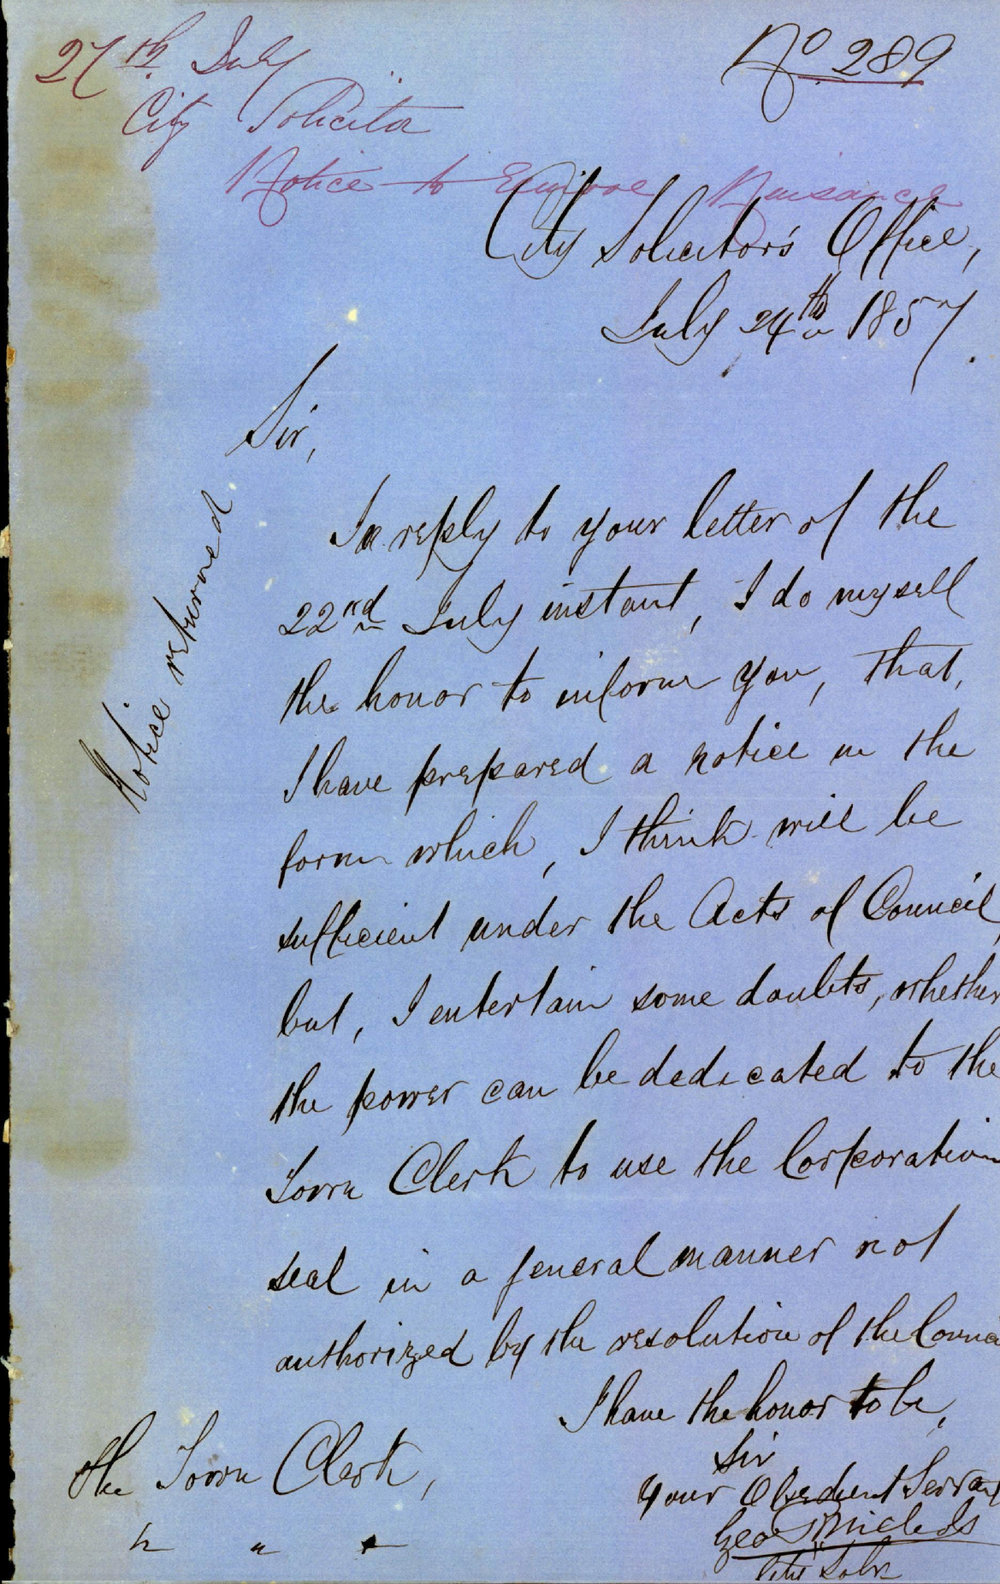 27th July
City Solicitor
Notice to Remove Nuisance
No 289
City Solicitor's Office,
July 24th 1857.
Notice returned.
Sir,
In reply to your letter of the
22nd July instant, I do myself
the honor to inform you, that,
I have prepared a notice in the
form which, I think will be
sufficient under the Acts of Council,
but, I entertain some doubts, whether
the power can be dedicated to the
Town Clerk to use the Corporation
seal in a general manner not
authorized by the resolution of the Counci
I have the honor to be,
Sir
Your Obedient Servant
Geo
City Solr
The Town Clerk,
" " "